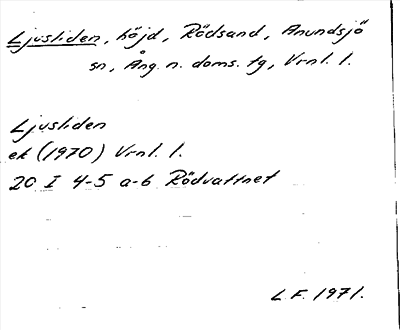 Ljusliden, höjd, Rödsand, Anundsjö
sn, Ång. n. doms. tg, Vrnl. l.
Ljusliden
ek (1970) Vrnl. l.
20 I 4-5 a-b Rödvattnet
L.F. 1971.